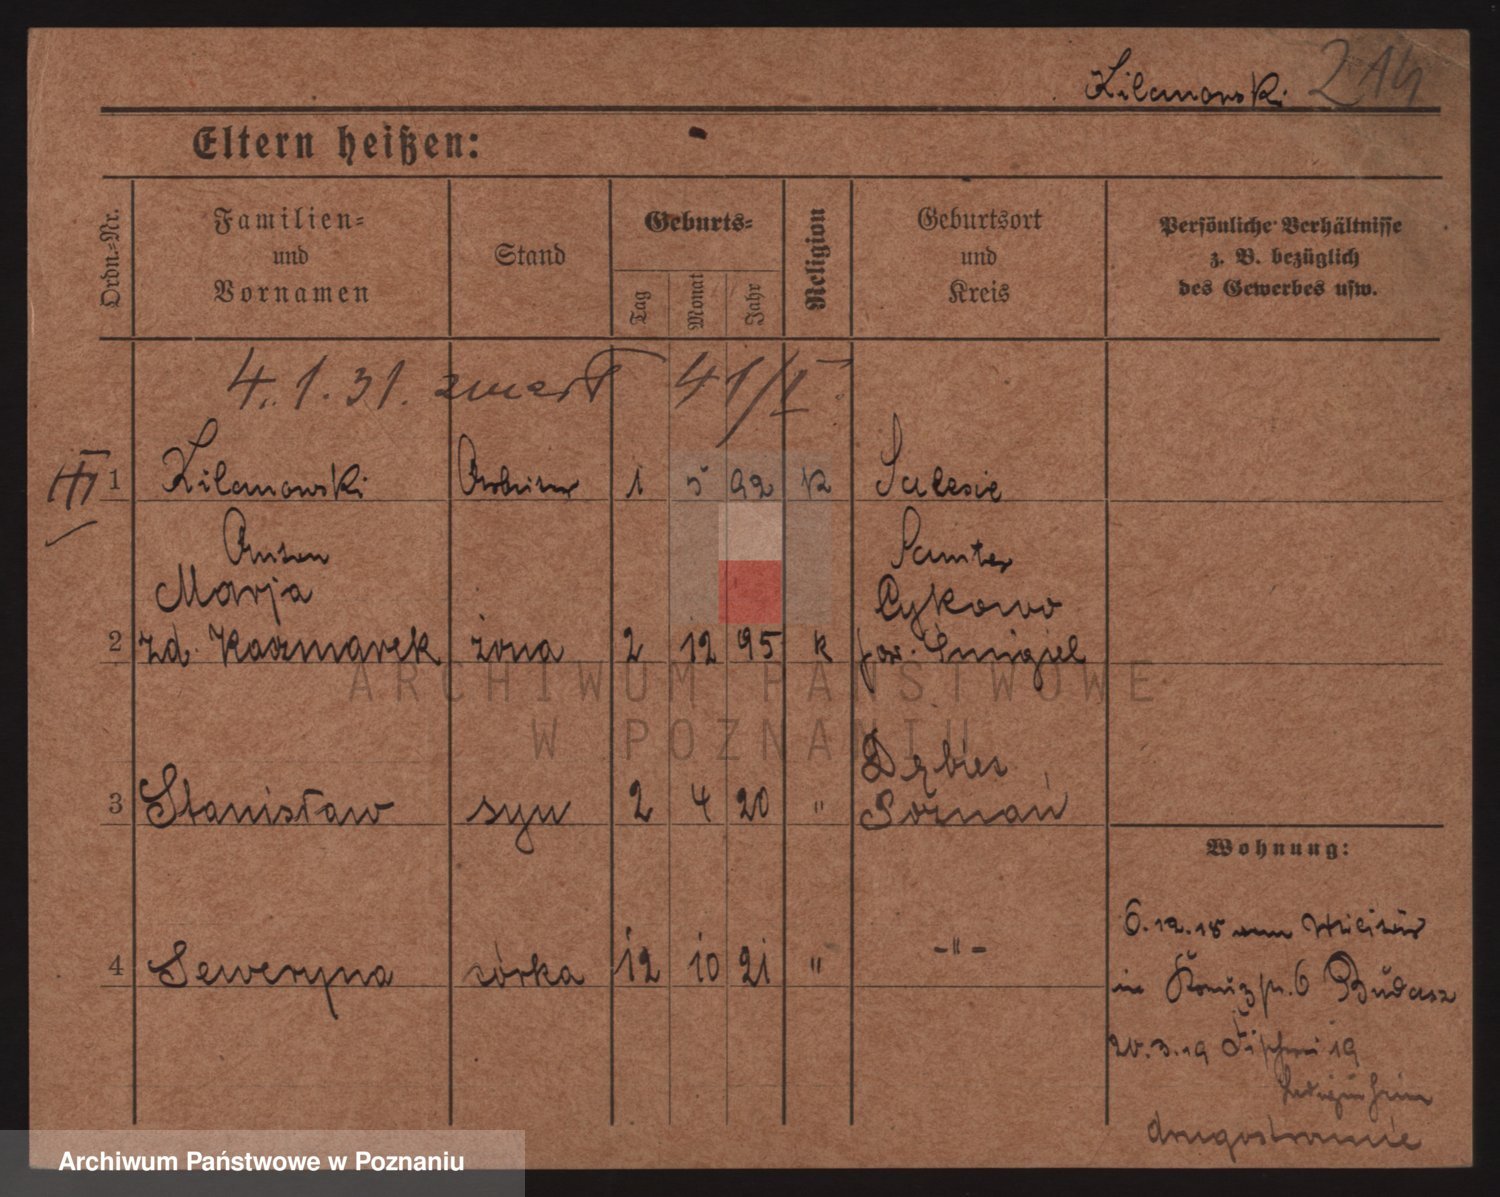 Kilanowski 214
Eltern heißen:
Ordn.=Nr.
Familien=
und
Vornamen
Stand
Geburts=
Tag
Monat
Jahr
Religion
Geburtsort
und
Kreis
Persönliche Verhältnisse
z. B. bezüglich
des Gewerbes usw.
4. 1. 31. zmarł 41/I
III 1 Kilanowski Arbeiter 1 5 92 K
Anton Samter
Marja Cykowo
2 zd. Kaczmarek żona 2 12 95 k pow. Śmigiel
Dębiec
3 Stanisław syn 2 4 20 " Poznań
Wohnung:
4 Seweryna córka 12 10 21 " -"-
6.12.18 vom Militär
in 6
20.3.19 19
drugostronnie
ARCHIWUM PAŃSTWOWE
W POZNANIU
Archiwum Państwowe w Poznaniu